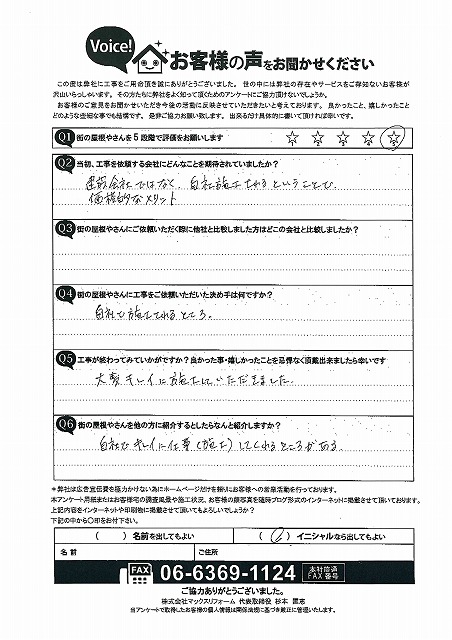 Voice!
お客様の声をお聞かせください
この度は弊社に工事をご用命頂き誠にありがとうございました。世の中には弊社の存在やサービスをご存知ないお客様が
沢山いらっしゃいます。その方たちに弊社をよく知って頂くためのアンケートにご協力頂けないでしょうか。
お客様のご意見をお聞かせいただき今後の活動に反映させていただきたいと考えております。良かったこと、嬉しかったこと
どのような些細な事でも結構です。是非ご協力お願い致します。出来るだけ具体的に書いて頂ければ幸いです。
Q1 街の屋根やさんを5段階で評価をお願いします ☆ ☆ ☆ ☆ ☆
Q2 当初、工事を依頼する会社にどんなことを期待されていましたか?
建設会社ではなく、自社施工されるということで、
価格的なメリット
Q3 街の屋根やさんにご依頼いただく際に他社と比較しました方はどこの会社と比較しましたか?
Q4 街の屋根やさんに工事をご依頼いただいた決め手は何ですか?
自社で施工されるところ。
Q5 工事が終わってみていかがですか?良かった事・嬉しかったことを忌憚なく頂戴出来ましたら幸いです
大変キレイに施工していただきました。
Q6 街の屋根やさんを他の方に紹介するとしたらなんと紹介しますか?
自社でキレイに仕事(施工)してくれるところがある。
*弊社は広告宣伝費を極力かけない為にホームページだけを頼りにお客様への営業活動を行っております。
本アンケート用紙またはお客様宅の調査風景や施工状況、お客様の顔写真を随時ブログ形式のインターネットに掲載させて頂いております。
上記内容をインターネットや印刷物に掲載させて頂いてもよろしいでしょうか?
下記の中から○印をお付下さい。
( )名前を出してもよい (○)イニシャルなら出してもよい
名前 ご住所
FAX 06-6369-1124 本社直通 FAX番号
ご協力ありがとうございました。
株式会社マックスリフォーム 代表取締役 杉本
当アンケートで取得したお客様の個人情報は関係法規に基づき厳正に管理いたします。